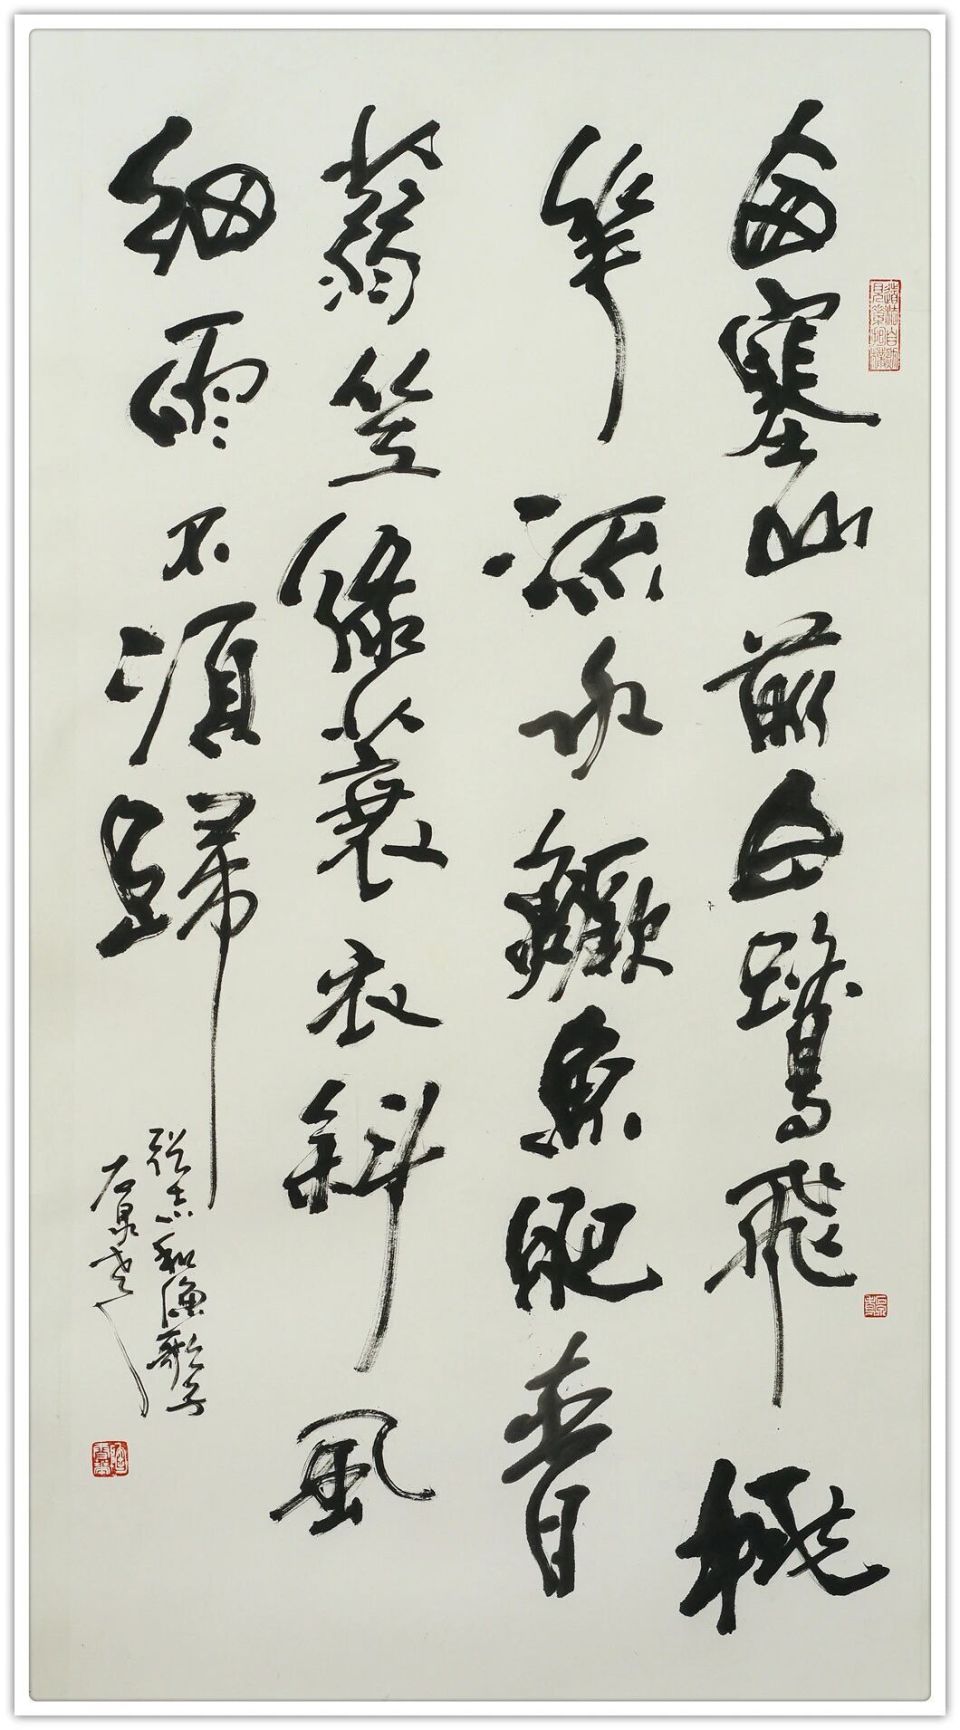 西塞山前白鷺飛桃
華流水鱖魚肥青
蒻笠綠蓑衣斜風
細雨不須歸
張志和漁歌子
石泉書